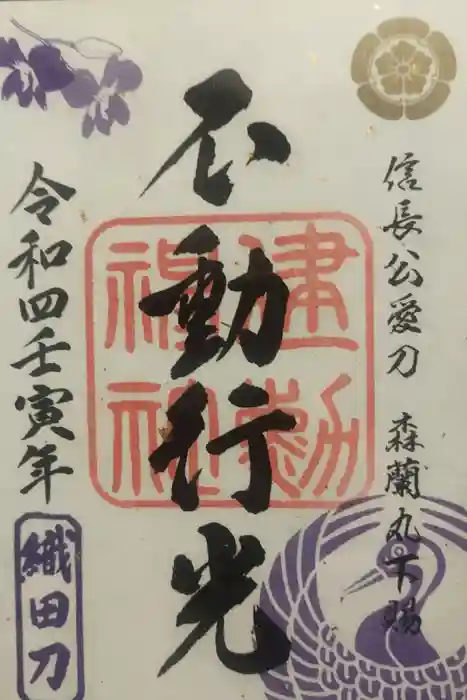 信長公愛刀 森蘭丸下賜
不動行光
建勲神社
令和四壬寅年
織田刀